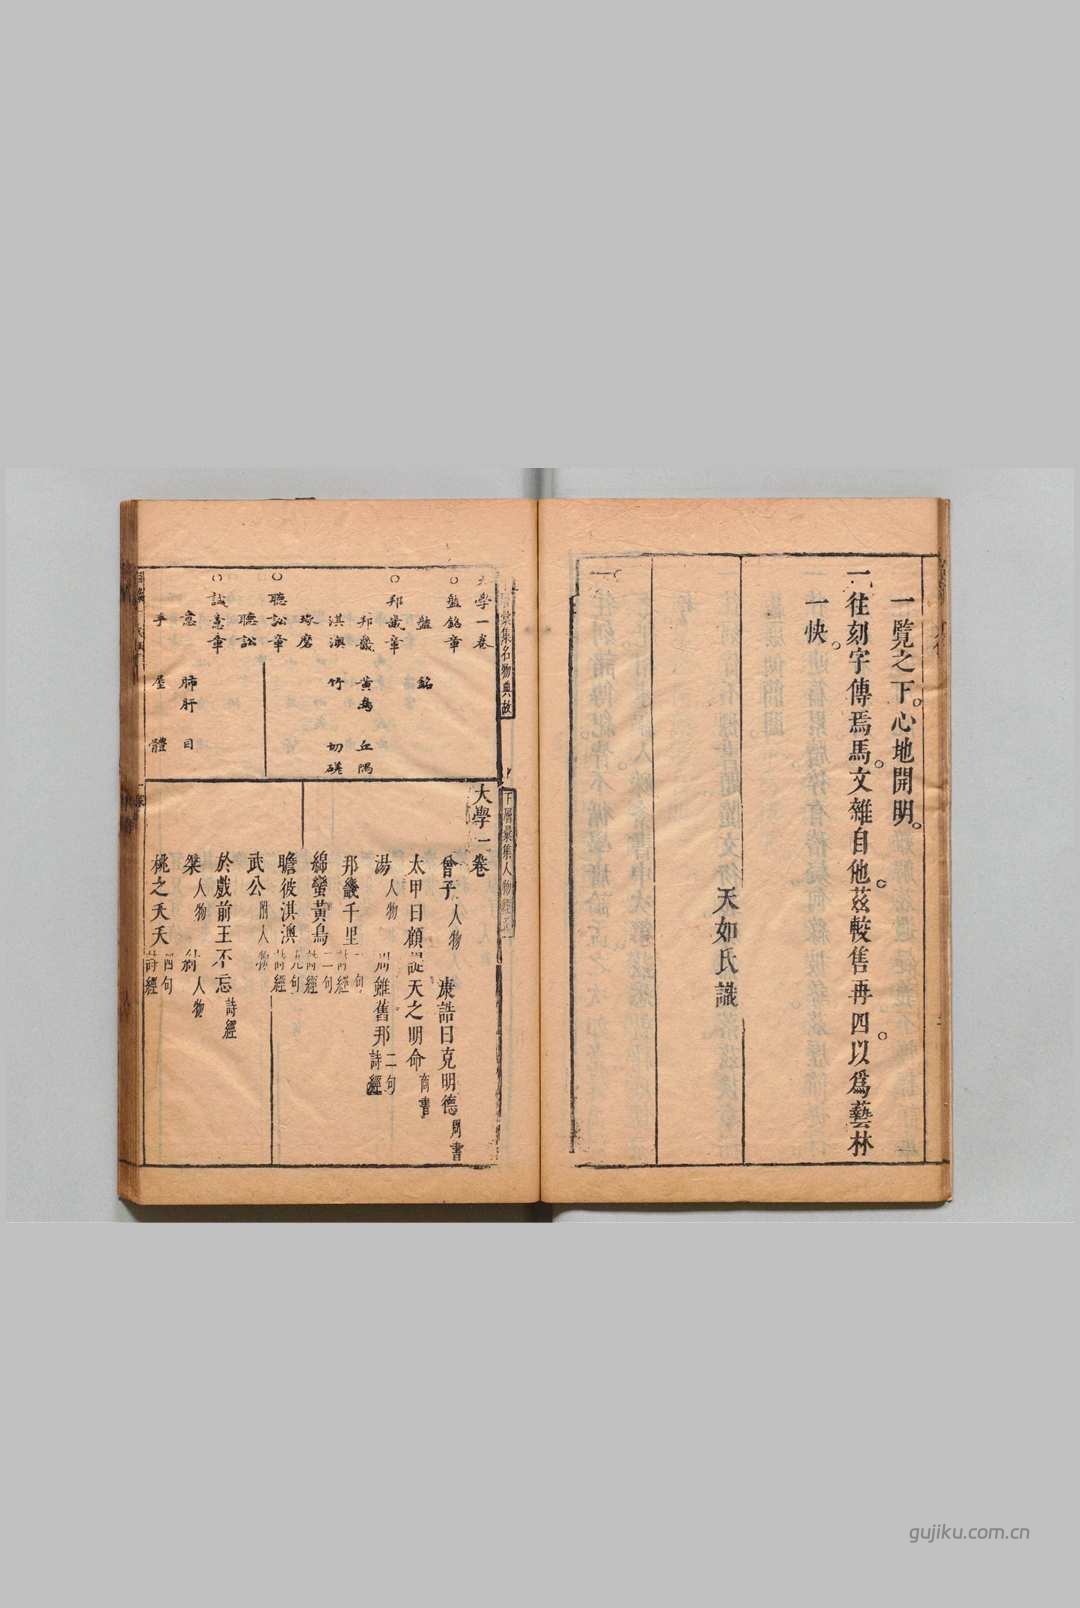 一覽之下。心地開明。
一往刻字傳焉馬。文雜自他。茲較售再四。以爲藝林
一快。
天如氏識
彙集名物典故
大學一卷
○盤銘章
盤 銘
○邦畿章
邦畿 黃鳥 丘隅
淇澳 竹 切磋
琢磨
○聽訟章
聽訟
○誠意章
意 肺肝 目
手 屋 體
下層彙集人物
大學一卷
曾子人物 康誥曰克明德周書
太甲曰顧諟天之明命商書
湯人物 周雖舊邦二句詩經
邦畿千里二句詩經
綿蠻黃鳥二句詩經
瞻彼淇澳九句詩經
武公附人物
於戲前王不忘詩經
桀人物 紂人物
桃之夭夭四句詩經
gujiku.com.cn